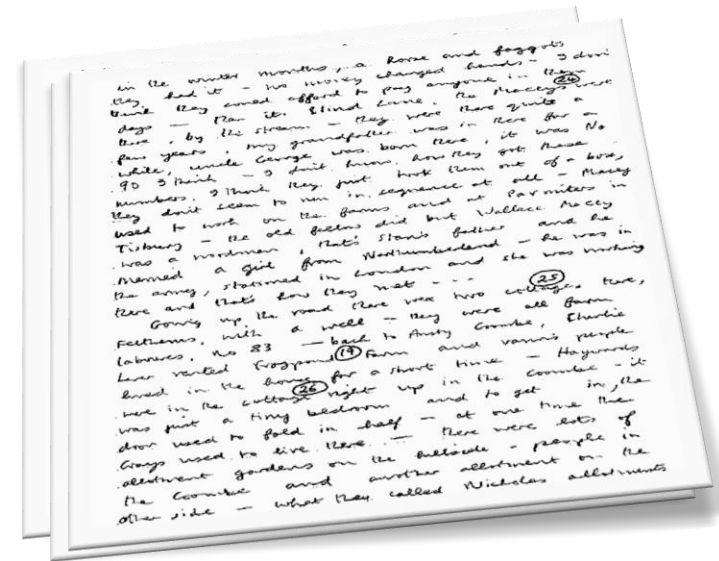 in the winter months, a horse and faggots
they had it - no money changed hands - I don't
think they could afford to pay anyone in them (24)
days - then its Blind Lane, the Maceys were
there, by the stream - they were there quite a
few years, my grandfather was in there for a
while, uncle George was born there, it was No
90 I think - I don't know how they got these
numbers, I think they just took them out of a box,
they don't seem to run in sequence at all - Macey
used to work on the farms and at Parmiters in
Tisbury - the old fellow did but Wallace Macey
was a woodman, that's Stan's father and he
married a girl from Northumberland - he was in
the army, stationed in London and she was working
there and that's how they met - - - (25)
Going up the road there were two cottages there,
Felthams, with a well - they were all farm
labourers, no 83 - back to Ansty Coombe, Charlie
rented Frogpond (19) Farm and various people
lived in the house for a short time - Haywards
were in the cottage (26) right up in the coombe - it
was just a tiny bedroom and to get in, the
door used to fold in half - at one time the
Grays used to live there - there were lots of
allotment gardens on the hillside - people in
the Coombe and another allotment on the
other side - what they called Nicholas allotments